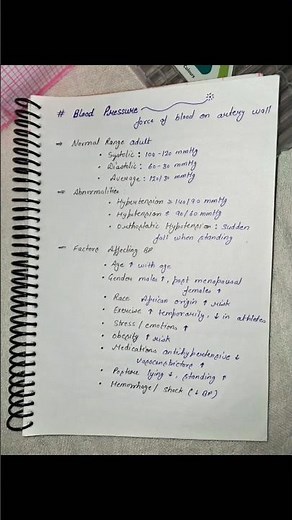 # Blood Pressure
force of blood on artery wall
⇒ Normal Range adult
• Systolic : 100-120 mmHg
• Diastolic : 60-80 mmHg
• Average : 120/80 mmHg
⇒ Abnormalities
• Hypertension ≥ 140/90 mmHg
• Hypotension < 90/60 mmHg
• Orthostatic Hypotension : Sudden
fall when standing
⇒ Factors Affecting BP
• Age ↑ with age
• Gender males ↑, post menopausal
females ↑
• Race African origin ↑ risk
• Exercise ↑ temporarily, ↓ in athletes
• Stress / emotions ↑
• Obesity ↑ risk
• Medications antihypertensive ↓
vasoconstrictors ↑
• Posture lying ↓, standing ↑
• Hemorrhage / shock (↓ BP)